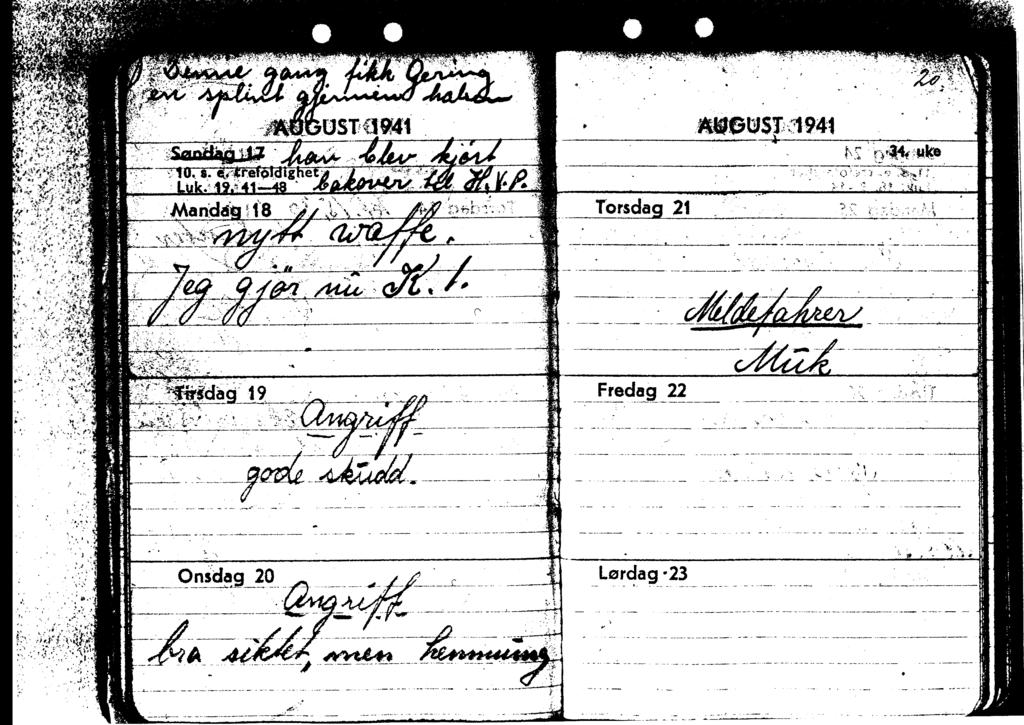 Denne gang fikk Gering
en splint gjennem halsen
AUGUST 1941
Søndag 17 han blev kjört
10. s. e. trefoldighet
Luk. 19, 41—48 bakover til H.V.P.
Mandag 18
nytt waffe.
Jeg gjör nu K.1.
Tirsdag 19
Angriff
gode skudd.
Onsdag 20
Angriff
bra siktet, men hemmung
20.
AUGUST 1941
34. uke
Torsdag 21
Meldefahrer
Muk
Fredag 22
Lørdag 23